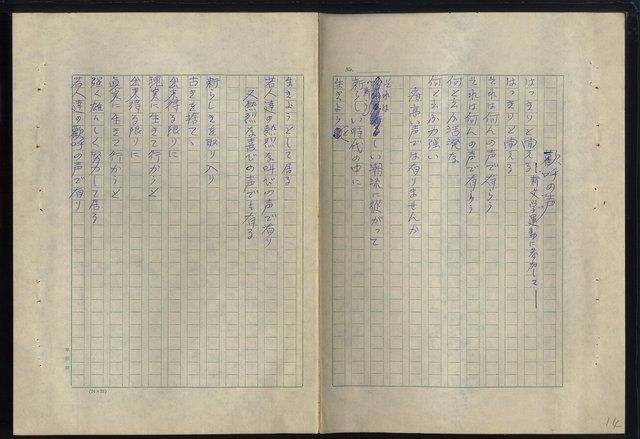 歓呼の声
―新文学運動に参加して―
はっきりと聞える
はっきりと聞える
それは何んの声で有らう
それは何んの声で有らう
何と云ふ活溌な
何と云ふ力強い
声では有りませんか
それは
新らしい潮流に従がって
新らしい時代の中に
生きよう
生きようとして居る
若人達の熱烈な叫びの声で有り
又熱烈な喜びの声でも有る
新らしきを取り入り
古きを捨てゝ
出来得る限りに
現実に生きて行かうと
出来得る限りに
真実に生きて行かうと
強く雄々しく努力して居る
若人達の歓呼の声で有り
(24×25)
No.
14